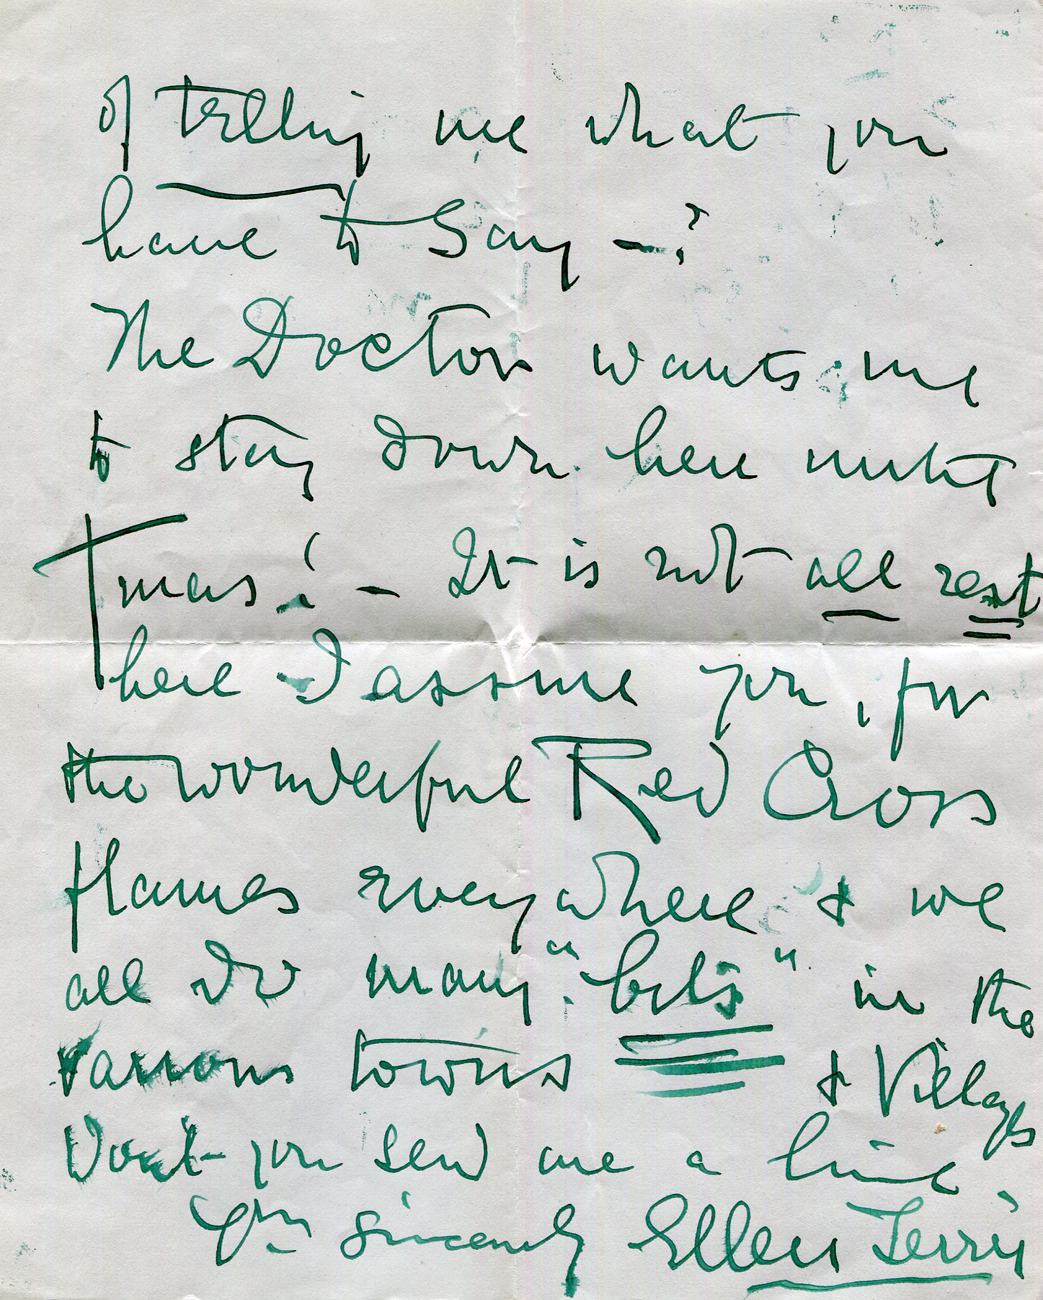 of telling me what you
have to say —?
The Doctor wants me
to stay down here until
Xmas! — It is not all rest
here I assure you, for
the wonderful Red Cross
flames everywhere & we
all do many "bits" in the
various towns & Villages
Won't you send me a line
Yrs sincerely Ellen Terry